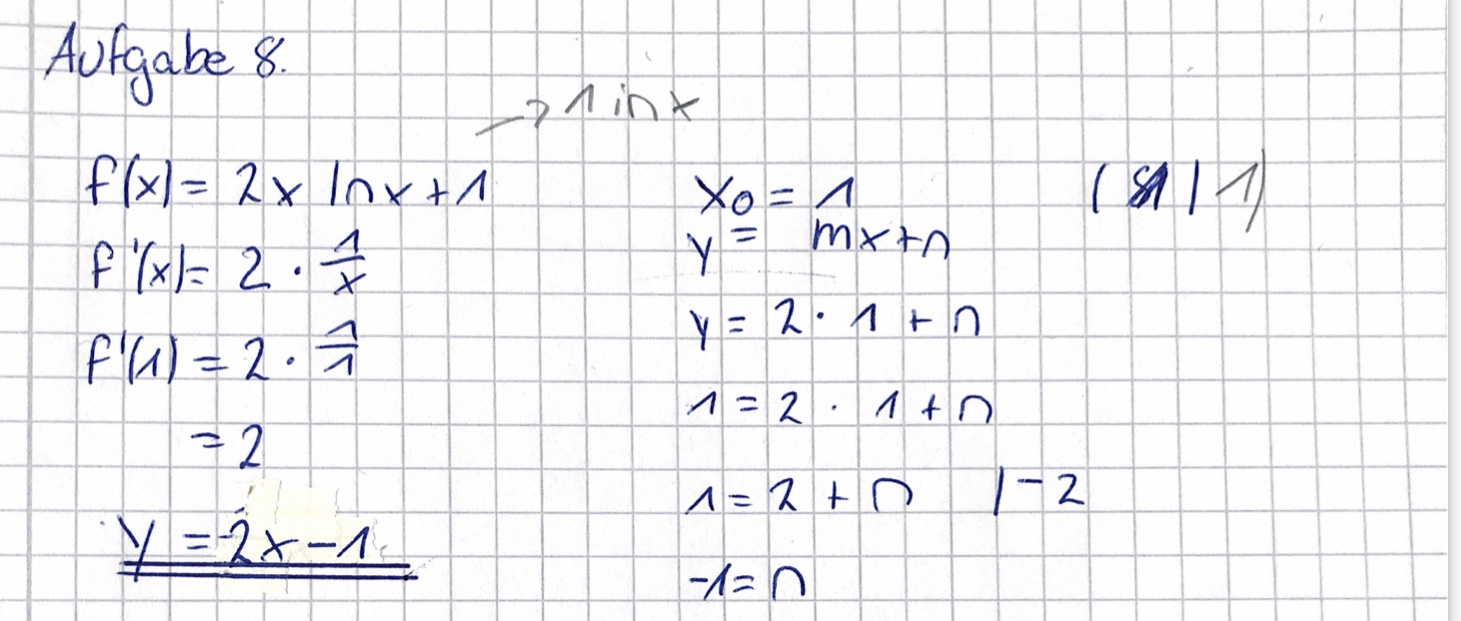 Aufgabe 8.
→ 1 in x
f(x) = 2x lnx + 1
f'(x) = 2 · 1/x
f'(1) = 2 · 1/1
= 2
y = 2x - 1
x₀ = 1
y = mx + n
y = 2 · 1 + n
1 = 2 · 1 + n
1 = 2 + n | - 2
-1 = n
(1 | 1)